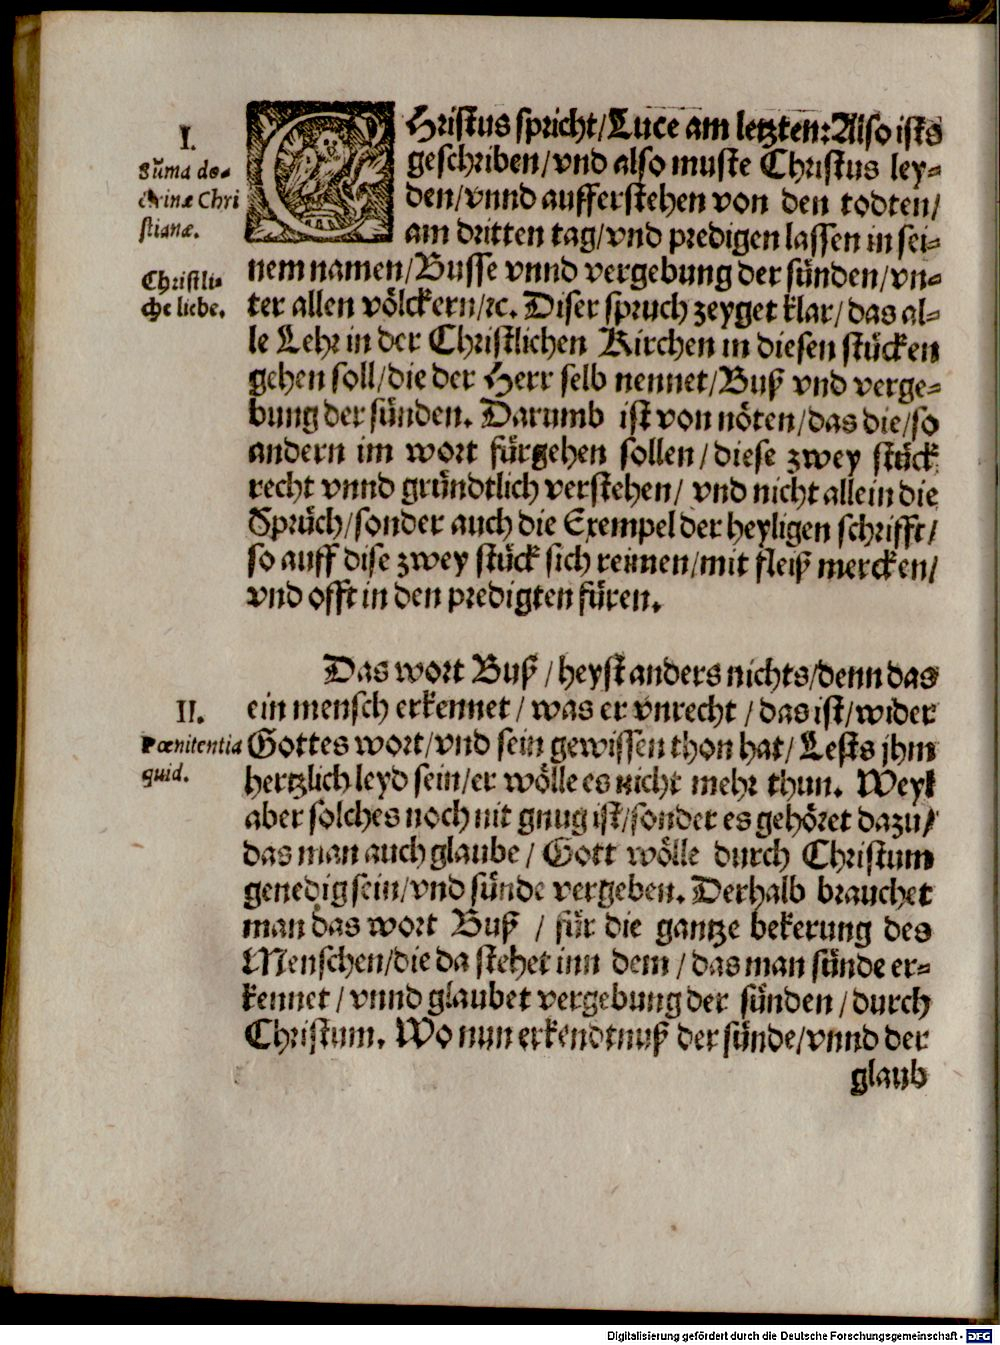 I.
Sūma do-
ctrinæ Chri
stianæ.
Christli-
che liebe.
CHristus spricht/Luce am letzten: Also ists
geschriben/vnd also muste Christus ley-
den/vnnd aufferstehen von den todten/
am dritten tag/vnd predigen lassen in sei-
nem namen/Busse vnnd vergebung der sünden/vn-
ter allen völckern/ꝛc. Diser spruch zeyget klar/das al-
le Lehr in der Christlichen Kirchen in diesen stücken
gehen soll/die der Herr selb nennet/Buß vnd verge-
bung der sünden. Darumb ist von nöten/das die/so
andern im wort fürgehen sollen/diese zwey stück
recht vnnd gründtlich verstehen/ vnd nicht allein die
Sprüch/sonder auch die Exempel der heyligen schrifft/
so auff dise zwey stück sich reimen/mit fleiß mercken/
vnd offt in den predigten füren.
Das wort Buß/heyst anders nichts/denn das
II.
Pœnitentia
quid.
ein mensch erkennet/was er vnrecht/das ist/wider
Gottes wort/vnd sein gewissen thon hat/Lests jhm
hertzlich leyd sein/er wölle es nicht mehr thun. Weyl
aber solches noch nit gnug ist/sonder es gehöret dazu/
das man auch glaube/Gott wölle durch Christum
genedig sein/vnd sünde vergeben. Derhalb brauchet
man das wort Buß/für die gantze bekerung des
Menschen/die da stehet inn dem/das man sünde er-
kennet/vnnd glaubet vergebung der sünden/durch
Christum. Wo nun erkendtnuß der sünde/vnnd der
glaub
Digitalisierung gefördert durch die Deutsche Forschungsgemeinschaft - DFG